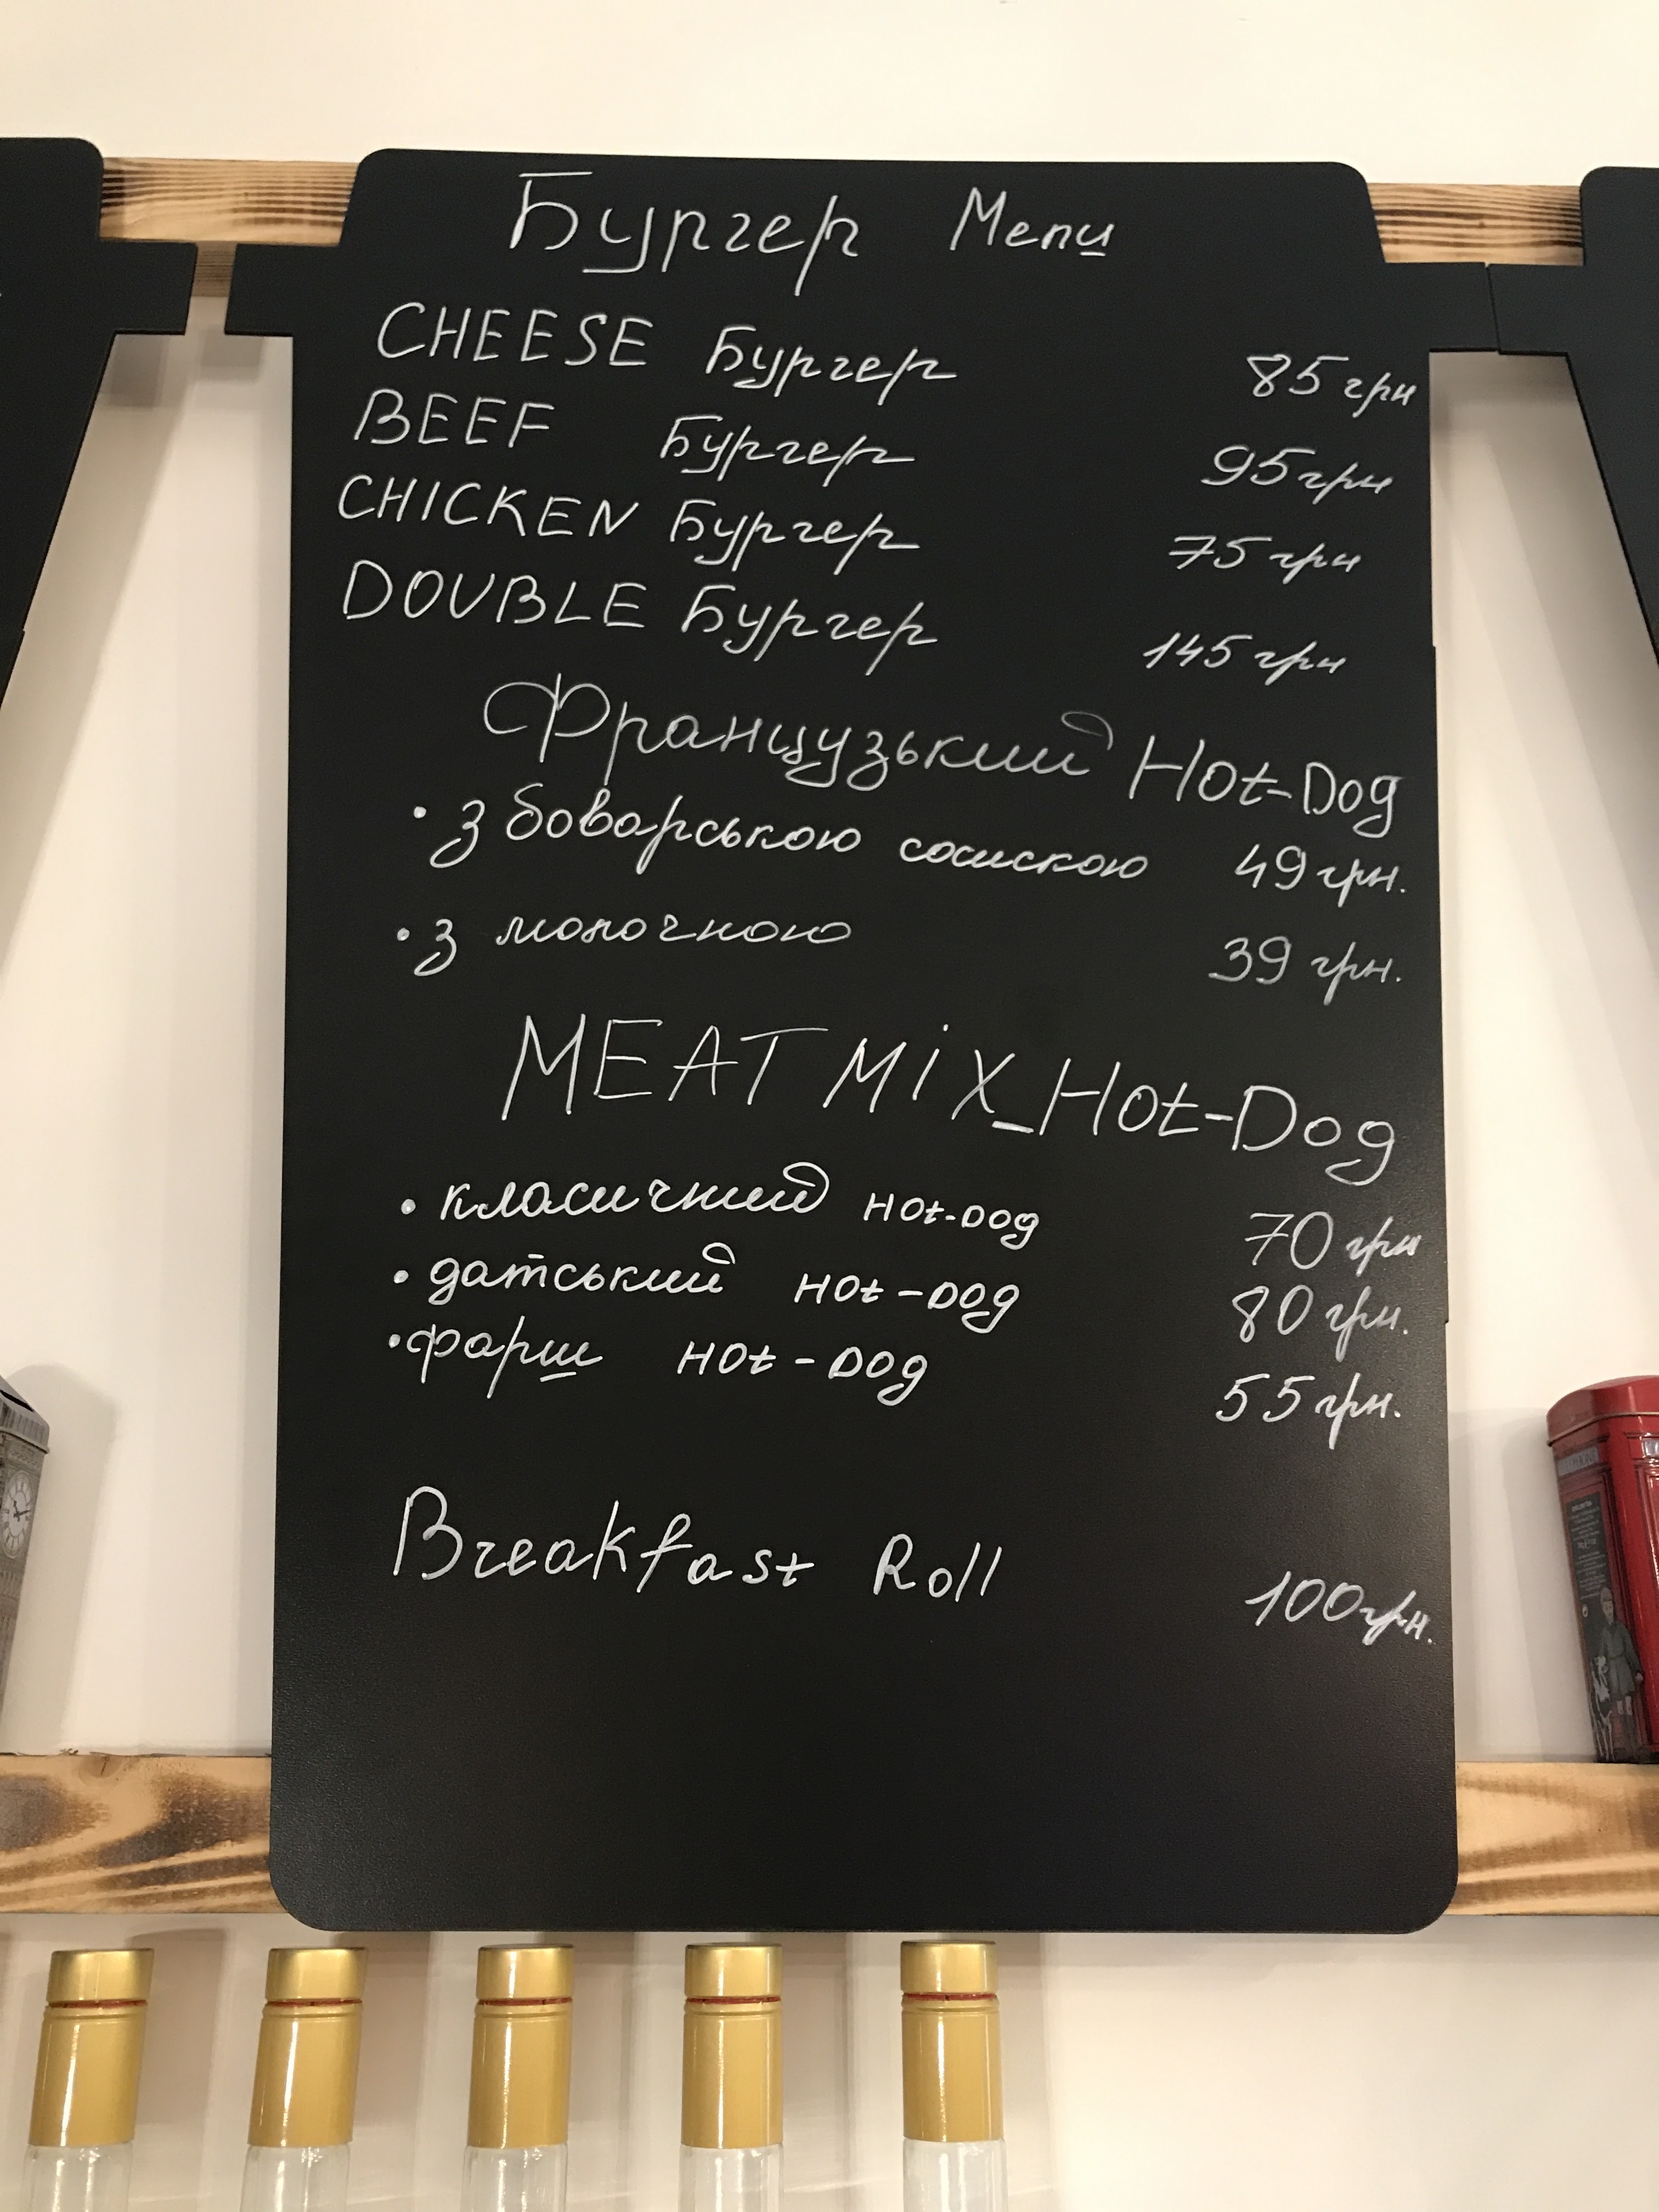 Бургер Menu
CHEESE Бургер 85 грн
BEEF Бургер 95 грн
CHICKEN Бургер 75 грн
DOUBLE Бургер 145 грн
Французький Hot-Dog
• з боварською сосискою 49 грн.
• з молочною 39 грн.
MEAT MiX_Hot-Dog
• класичний HOt-DOg 70 грн
• датський HOt-DOg 80 грн.
• фарш HOt-DOg 55 грн.
Breakfast Roll 100 грн.